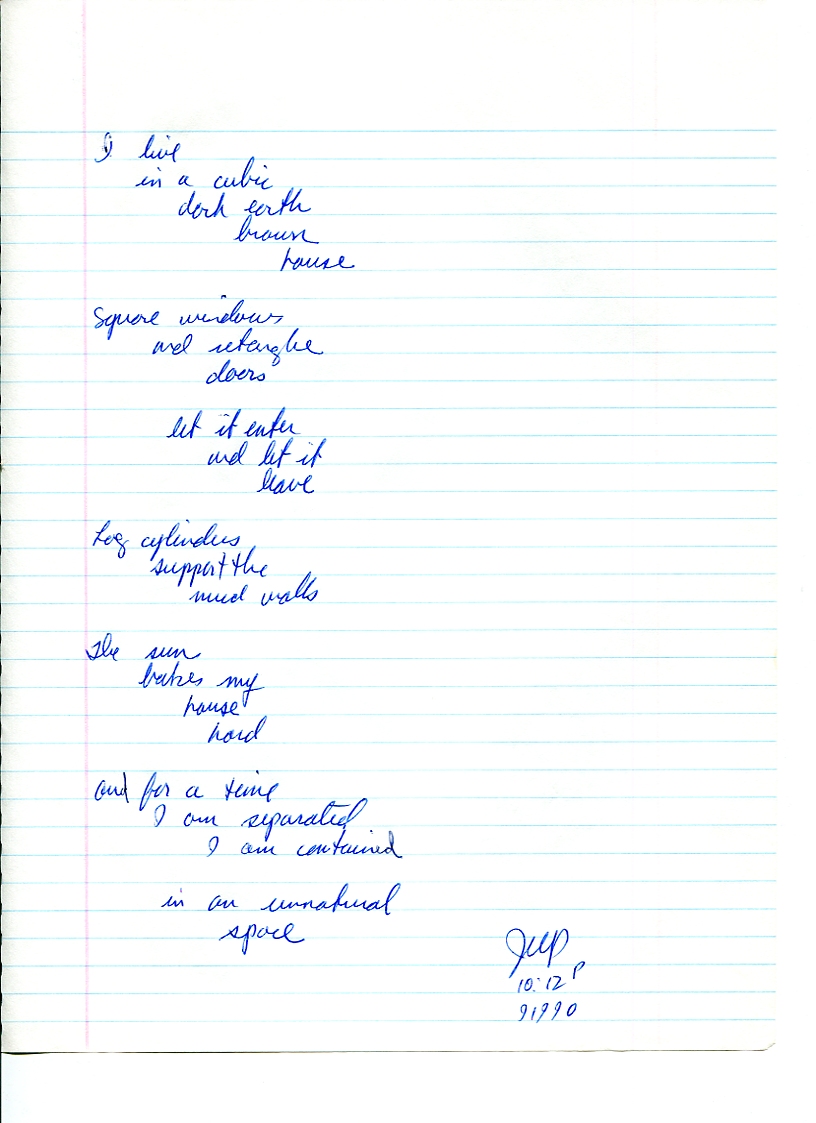 I live
in a cubic
dark earth
brown
house
Square windows
and retangle
doors
let it enter
and let it
leave
Log cylinders
support the
mud walls
The sun
bakes my
house
hard
and for a time
I am separated
I am contained
in an unnatural
space
10:12 P
91990